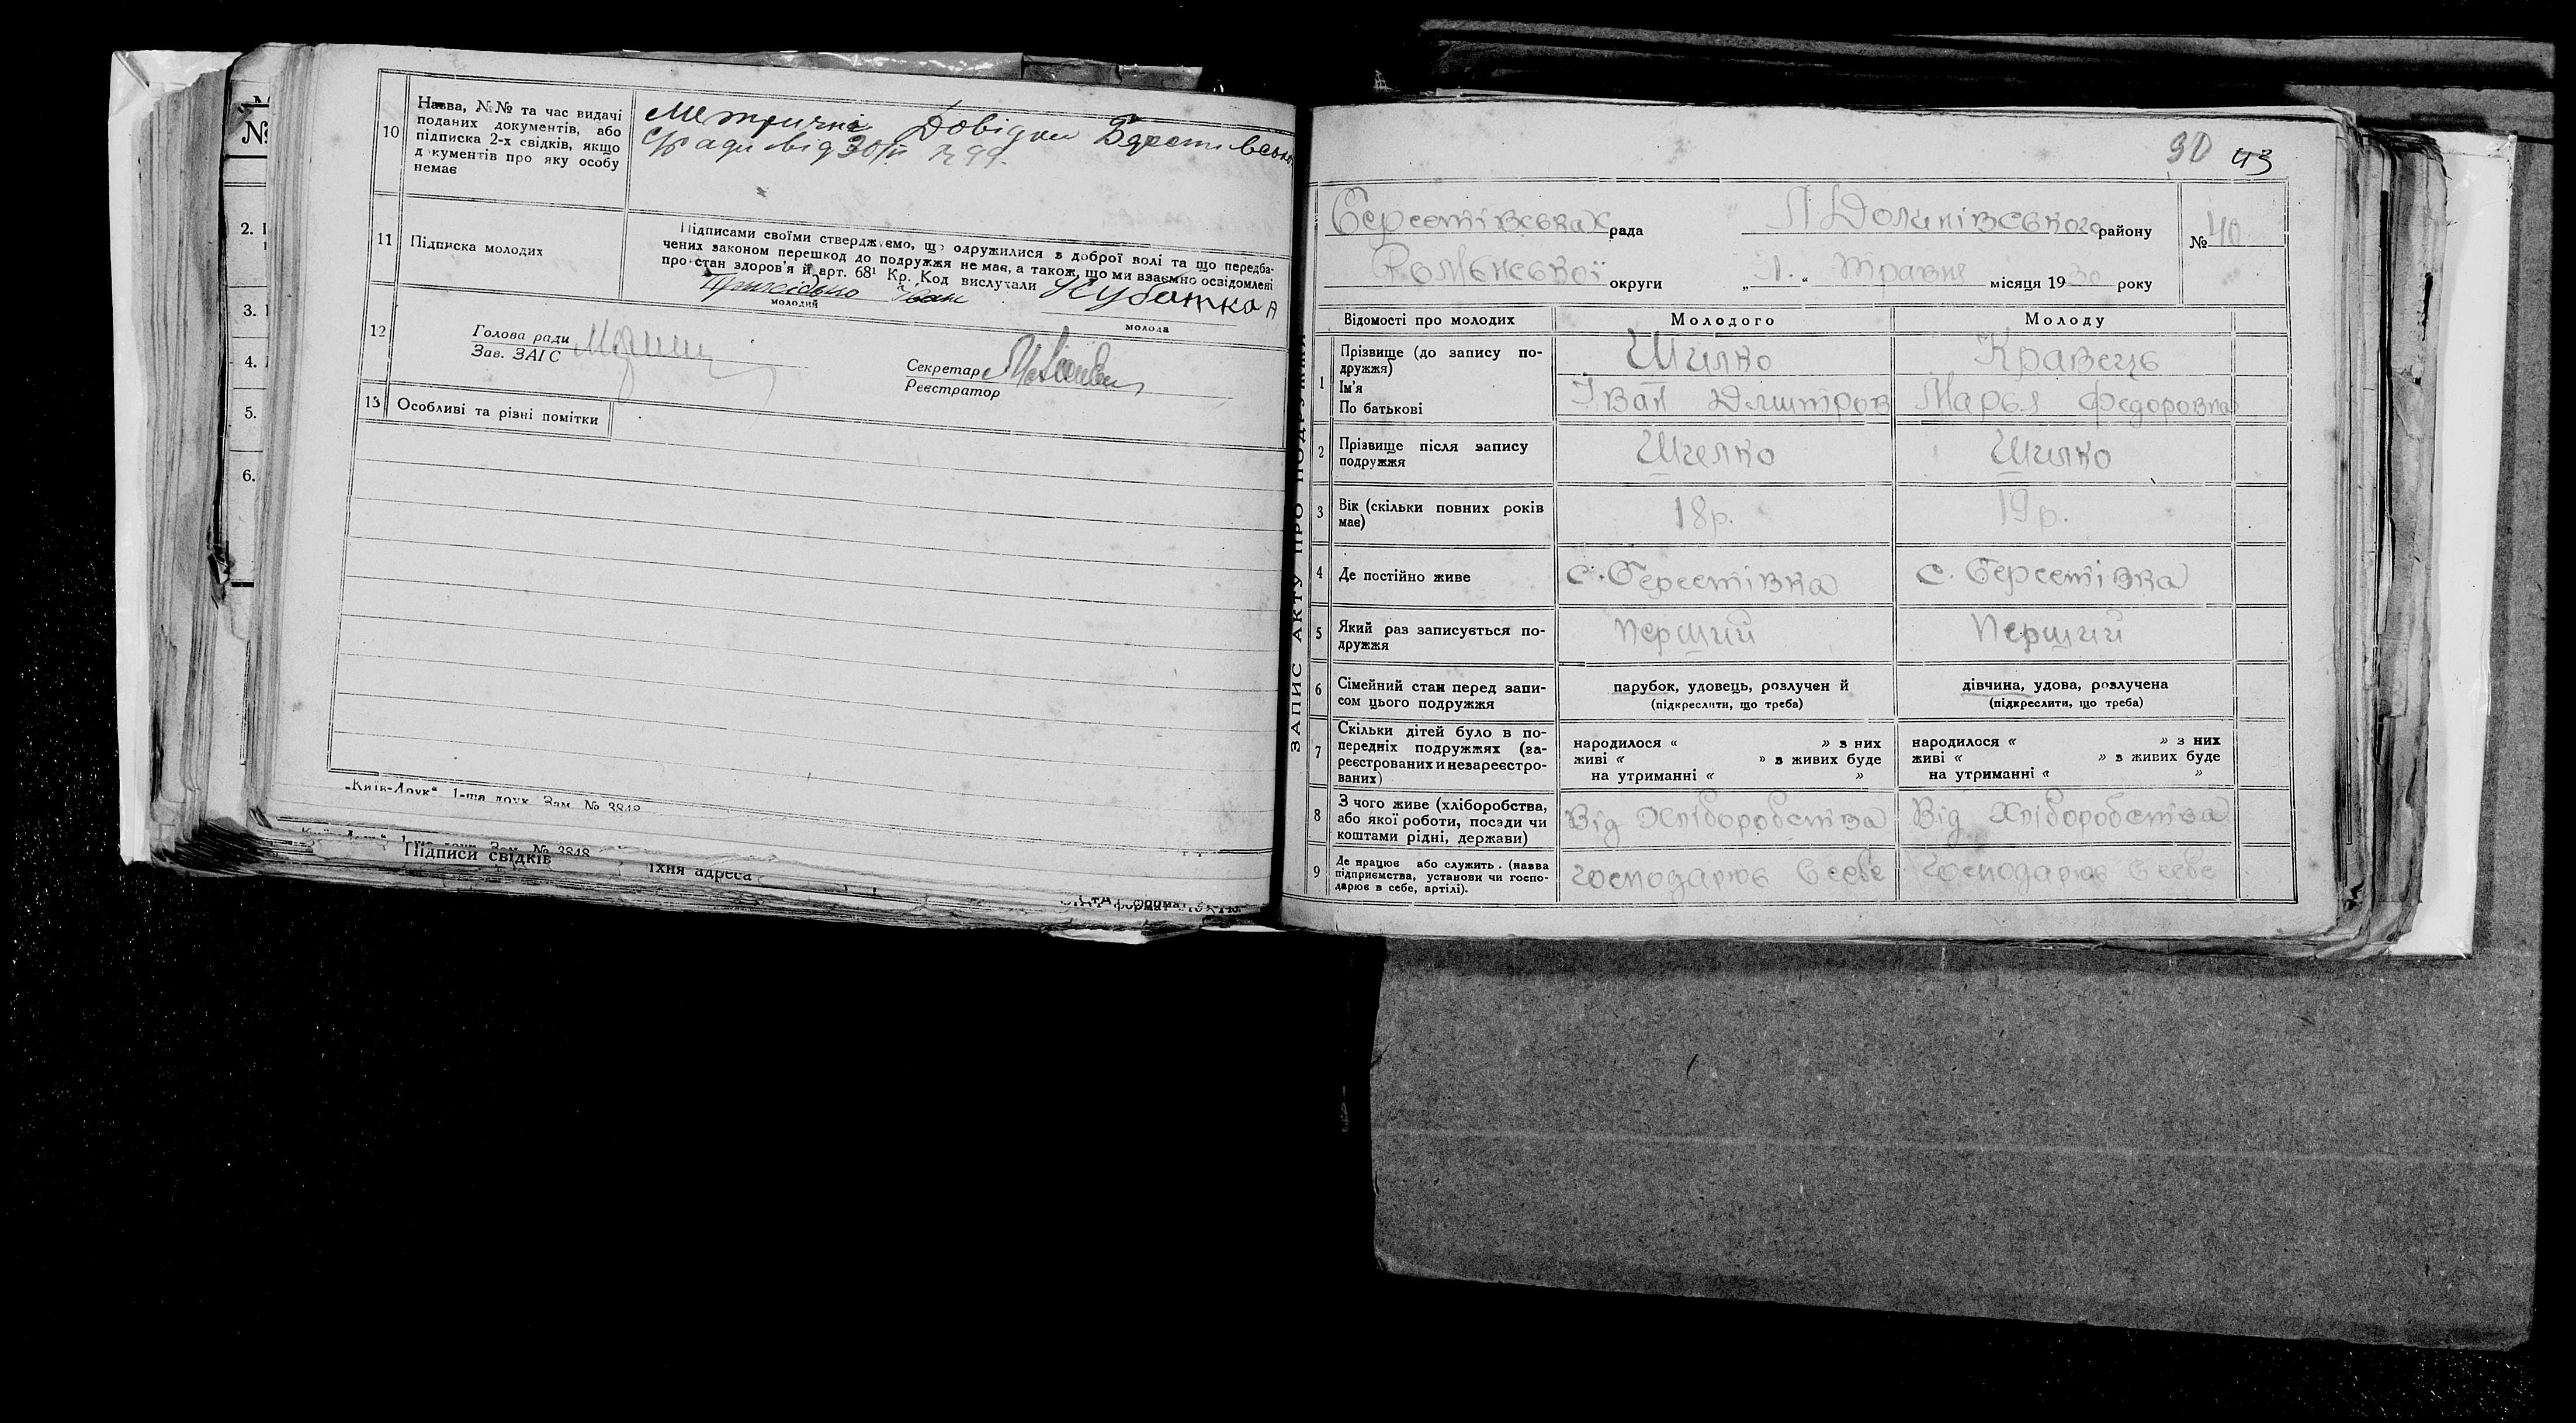 10
Назва, №№ та час видачі
поданих документів, або
підписка 2-х свідків, якщо
д кументів про яку особу
немає
Метричні Довідки
від 30/
11
Підписка молодих
Підписами своїми стверджуємо, що одружилися з доброї волі та що передба-
чених законом перешкод до подружжя не має, а також, що ми взаємно освідомлені
про стан здоров'я й арт. 68¹ Кр. Код вислухали
Іван
молодий
молода
12
Голова ради
Зав. ЗАГС
Секретар
Реєстратор
13
Особливі та різні помітки
„Київ-Друк“ 1-ша друк. Зам. № 3848
Підписи свідків
їхня адреса
№
2.
3.
4.
5.
6.
ЗАПИС АКТУ ПРО ПОДРУЖЖЯ
90 43
Берестівська С рада Л Долинівського району
№ 40
Роменської округи „1.“ Травня місяця 1930 року
Відомості про молодих Молодого Молоду
1
Прізвище (до запису по-
дружжя)
Шилко Кравець
Ім'я
По батькові
Іван Дмитров Марья Федоровна
2
Прізвище після запису
подружжя
Шилко Шилко
3
Вік (скільки повних років
має)
18р. 19р.
4
Де постійно живе
с. Берестівка с. Берестівка
5
Який раз записується по-
дружжя
Перший Перший
6
Сімейний стан перед запи-
сом цього подружжя
парубок, удовець, розлучен й
(підкреслити, що треба)
дівчина, удова, розлучена
(підкреслити, що треба)
7
Скільки дітей було в по-
передніх подружжях (за-
реєстрованих и незареєстро-
ваних)
народилося « » з них
живі « » з живих буде
на утриманні « »
народилося « » з них
живі « » з живих буде
на утриманні « »
8
З чого живе (хліборобства,
або якої роботи, посади чи
коштами рідні, держави)
Від Хліборобства Від Хліборобства
9
Де працює або служить. (назва
підприємства, установи чи госпо-
дарює в себе, артілі).
Господарює в себе Господарює в себе